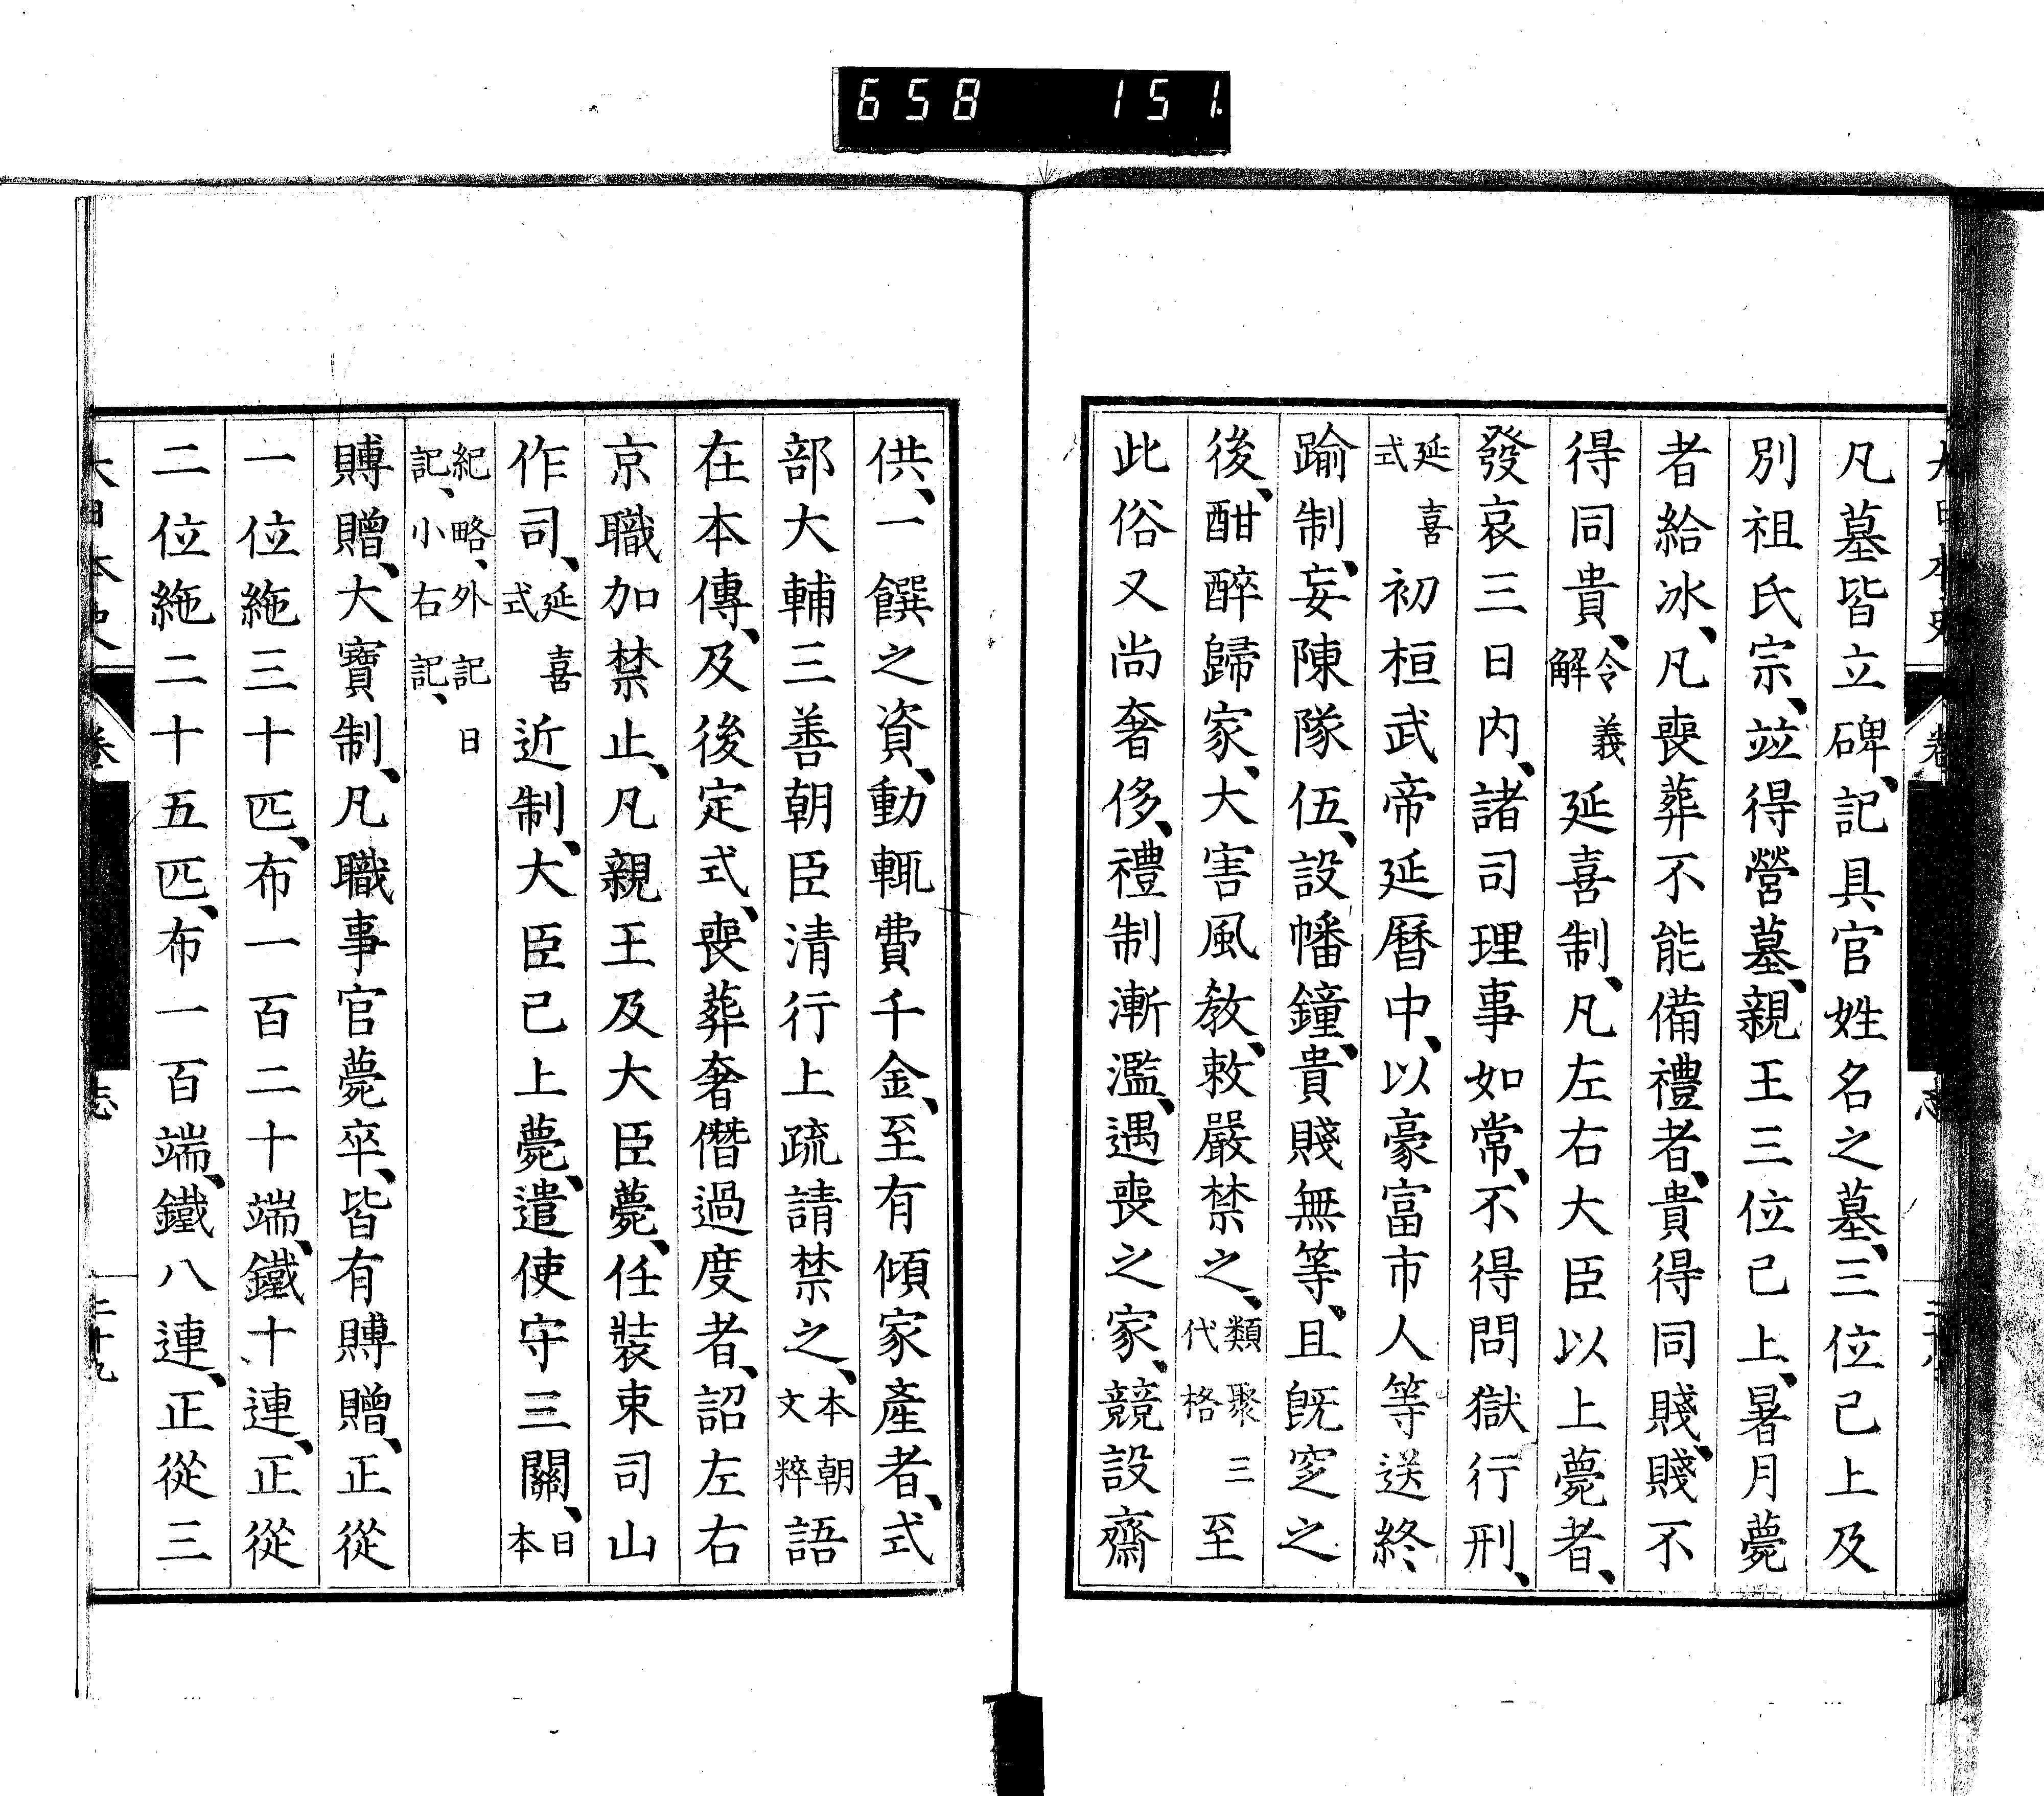 658 151.
凡墓皆立碑、記具官姓名之墓、三位已上及
別祖氏宗、竝得營墓、親王三位已上、暑月薨
者給冰、凡喪葬不能備禮者、貴得同賤、賤不
得同貴、令義解延喜制、凡左右大臣以上薨者、
發哀三日内、諸司理事如常、不得問獄行刑、
延喜式初桓武帝延曆中、以豪富市人等送終
踰制、妄陳隊伍、設幡鐘、貴賤無等、且既窆之
後、酣醉歸家、大害風敎、敕嚴禁之、類聚三代格至
此俗又尚奢侈、禮制漸濫、遇喪之家、競設齋
供、一饌之資、動輒費千金、至有傾家產者、式
部大輔三善朝臣清行上疏請禁之、本朝文粹語
在本傳、及後定式、喪葬奢僭過度者、詔左右
京職加禁止、凡親王及大臣薨、任裝束司山
作司、延喜式近制、大臣已上薨、遣使守三關、日本
紀略、外記日記、小右記、
賻贈、大寶制、凡職事官薨卒、皆有賻贈、正從
一位絁三十匹、布一百二十端、鐵十連、正從
二位絁二十五匹、布一百端、鐵八連、正從三
大日本史 卷 志 二十九